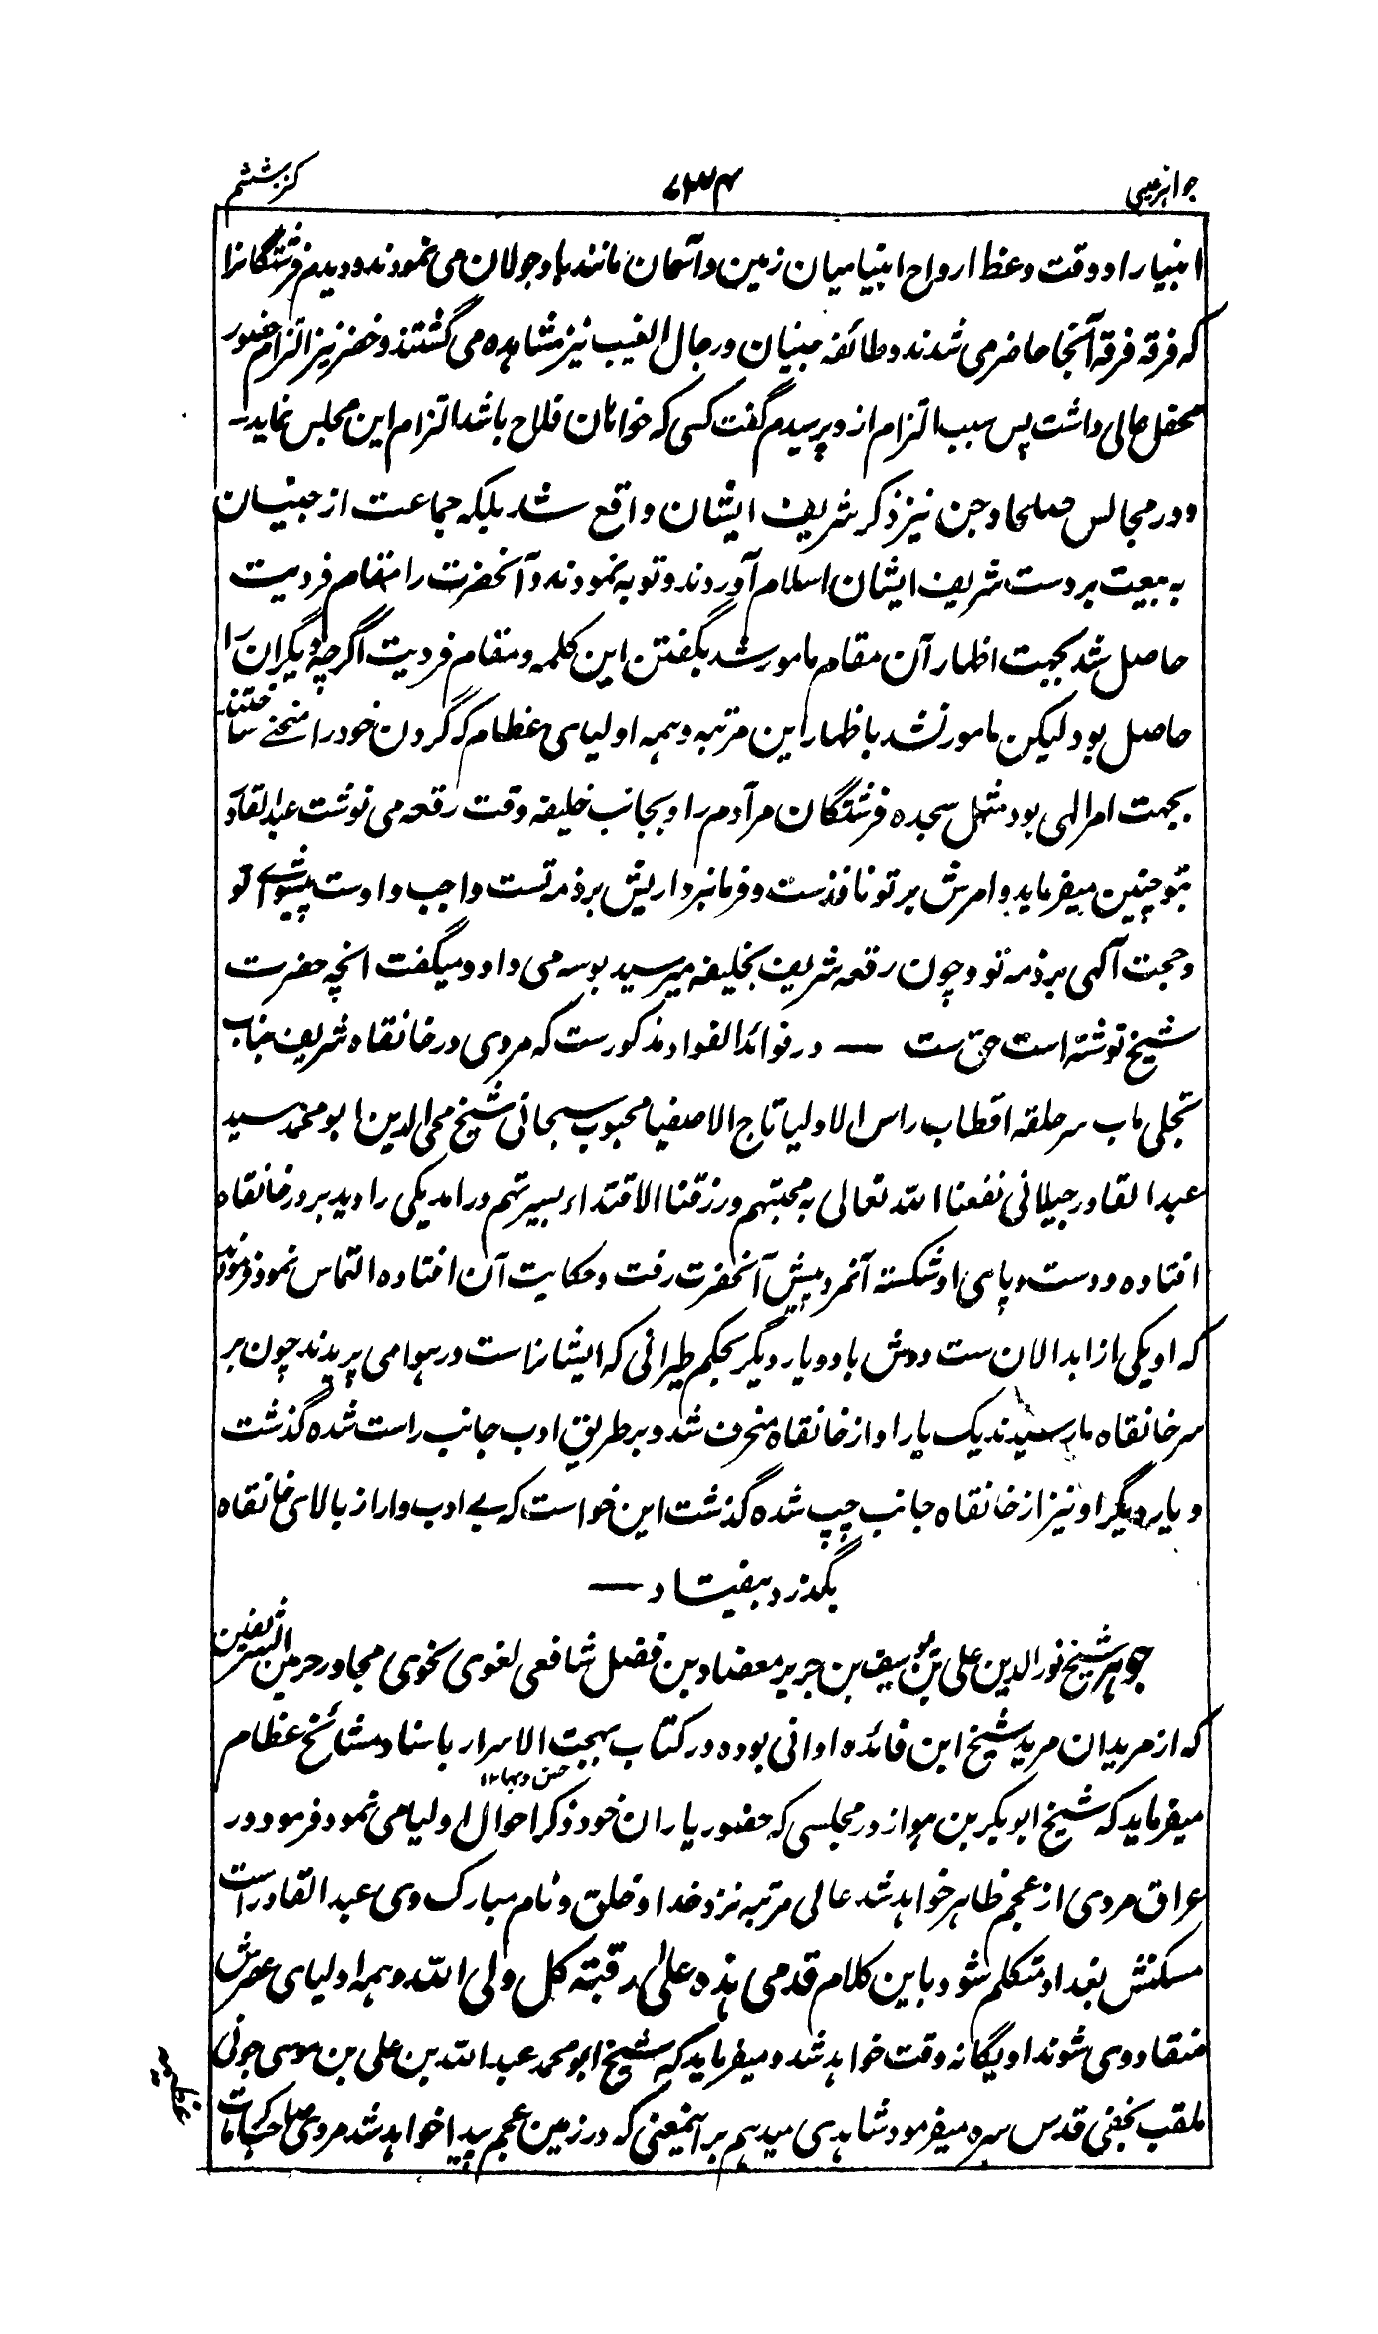 جواهر غیبی ۷۳۴ کنز ششم
انبیا را و وقت وعظ ارواح انبیا میان زمین و آسمان مانند باد جولان می نمودند و دیدم فرشتگانرا
که فرقه فرقه آنجا حاضر می شدند و طائفه جنیان و رجال الغیب نیز مشاهده می گشتند و خضر نیز التزام حضور
محفل عالی داشت پس سبب التزام ازو پرسیدم گفت کسی که خواهان فلاح باشد التزام این مجلس نماید ـ
و در مجالس صلحاء جن نیز ذکر شریف ایشان واقع شد بلکه جماعت از جنیان
به بیعت بر دست شریف ایشان اسلام آوردند و توبه نمودند و آنحضرت را مقام فردیت
حاصل شد بجهت اظهار آن مقام مامور شد بگفتن این کلمه و مقام فردیت اگرچه دیگران را
حاصل بود لیکن مامور نشد باظهار این مرتبه و همه اولیای عظام که گردن خود را منحنی ساختند
بجهت امر الهی بود مثل سجده فرشتگان مر آدم را و بجانب خلیفه وقت رقعه می نوشت عبدالقادر
بتو چنین میفرماید و امرش بر تو نافذست و فرمانبرداریش بر ذمه تست واجب و اوست پیشوای تو
و حجت آلهی بر ذمه تو و چون رقعه شریف بخلیفه میرسید بوسه می داد و میگفت انچه حضرت
شیخ نوشته است حق ست — در فوائد الفواد مذکورست که مردی در خانقاه شریف جناب
تجلی ماب سر حلقه اقطاب راس الاولیا تاج الاصفیا محبوب سبحانی شیخ محی الدین ابو محمد سید
عبد القادر جیلانی نفعنا الله تعالی به محبتهم ورزقنا الاقتداء بسیرتهم درامد یکی را دید بر در خانقاه
افتاده و دست و پای او شکسته آنمرد پیش آنحضرت رفت و حکایت آن افتاده التماس نمود فرمودند
که او یکی از ابدالان ست دوش با دو یار دیگر بحکم طیرانی که ایشانراست در هوا می پریدند چون بر
سر خانقاه ما رسیدند یک یار او از خانقاه منحرف شد و بر طریق ادب جانب راست شده گذشت
و یار دیگر او نیز از خانقاه جانب چپ شده گذشت این خواست که بے ادب وار از بالای خانقاه
بگذرد بیفتاد —
جوهر شیخ نور الدین علی بن یوسف بن جریر معضاد بن فضل شافعی لغوی نحوی مجاور حرمین الشریفین
که از مریدان مرید شیخ ابن قائده اوانی بوده در کتاب بهجت الاسرار باسناد مشائخ عظام
حسن و بها ۱۲
میفرماید که شیخ ابوبکر بن هوار در مجلسی که حضور یاران خود ذکر احوال اولیا می نمود فرمود در
عراق مردی از عجم ظاهر خواهد شد عالی مرتبه نزد خدا و خلق و نام مبارک وی عبد القادر است
مسکنش بغداد متکلم شود باین کلام قدمی هذه علی رقبته کل ولی الله و همه اولیای عصرش
منقاد وی شوند او یگانه وقت خواهد شد و میفرماید که شیخ ابو محمد عبد الله بن علی بن موسی جونی
ملقب بخفی قدس سره میفرمود شاهدی میدهم بر اینمعنی که در زمین عجم پیدا خواهد شد مردی صاحب کرامات